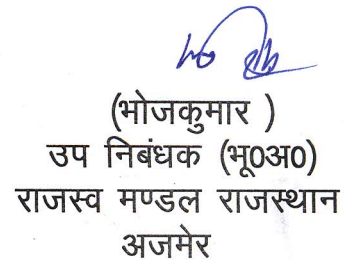 (भोजकुमार )
उप निबंधक (भू0अ0)
राजस्व मण्डल राजस्थान
अजमेर